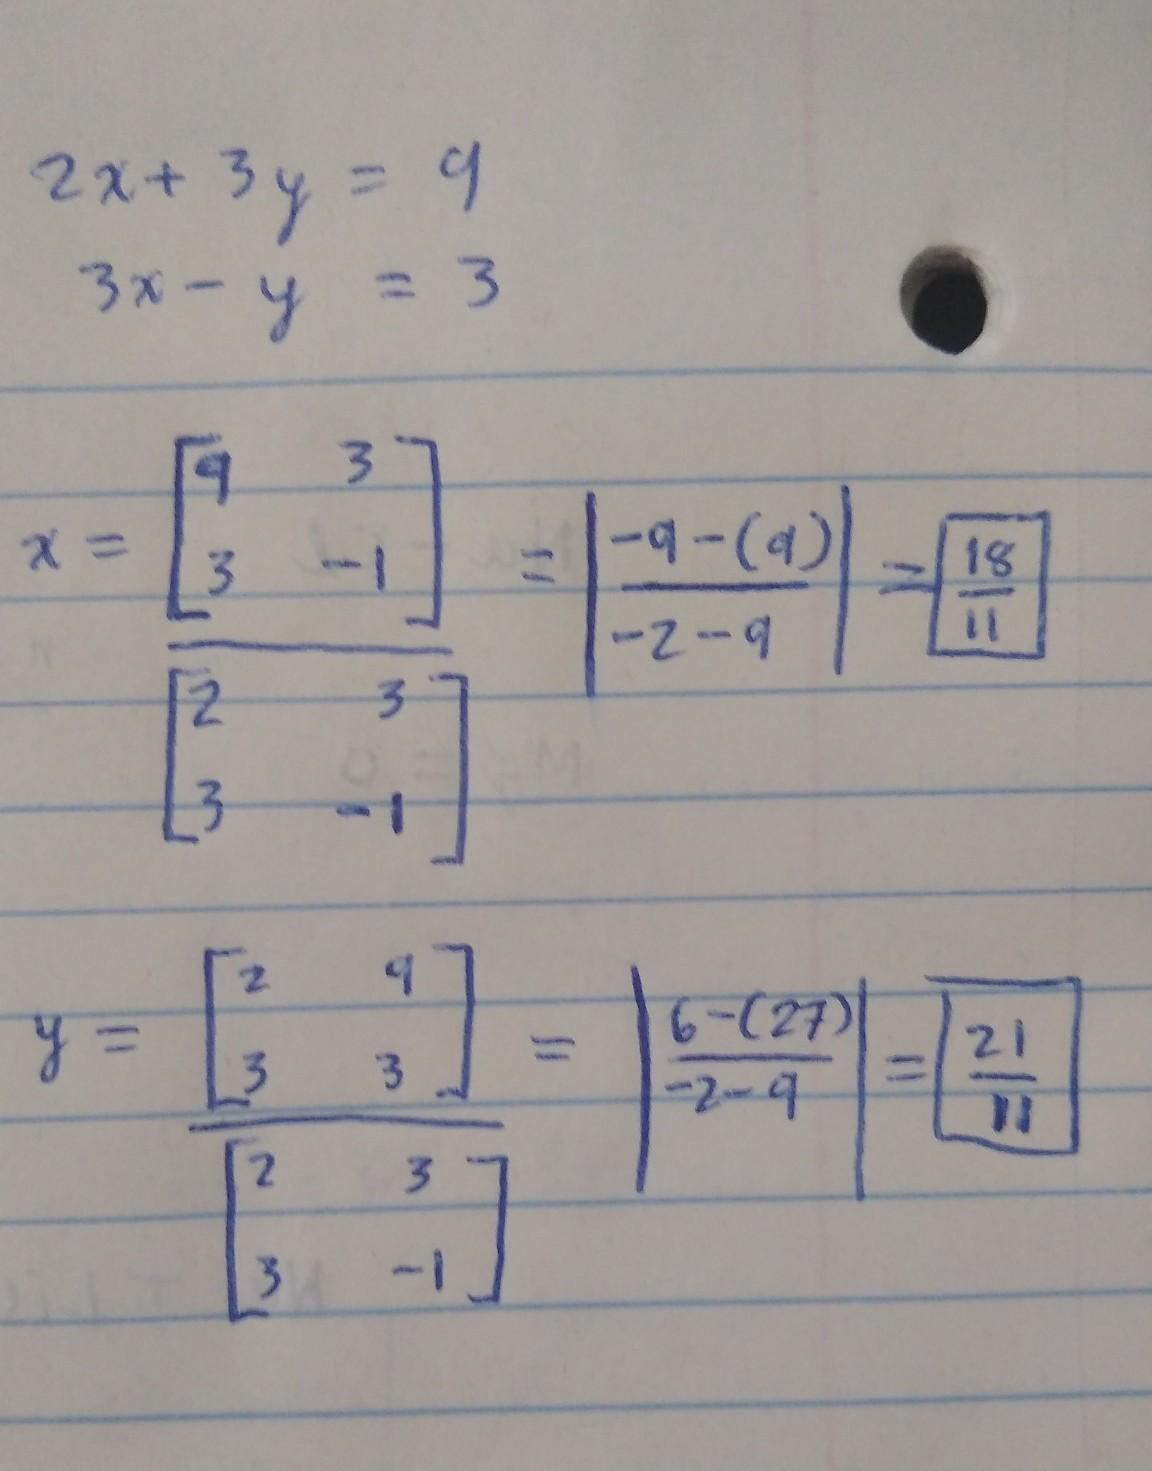 2x + 3y = 9
3x - y = 3
x = [9 3; 3 -1] / [2 3; 3 -1] = | (-9-(9)) / (-2-9) | = 18/11
y = [2 9; 3 3] / [2 3; 3 -1] = | (6-(27)) / (-2-9) | = 21/11